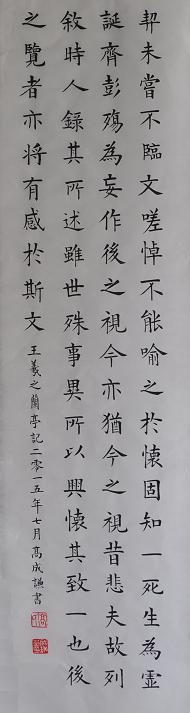 契未嘗不臨文嗟悼不能喻之於懷固知一死生為虛
誕齊彭殤為妄作後之視今亦猶今之視昔悲夫故列
敘時人錄其所述雖世殊事異所以興懷其致一也後
之覽者亦将有感於斯文
王羲之蘭亭記二零一五年七月髙成謙書